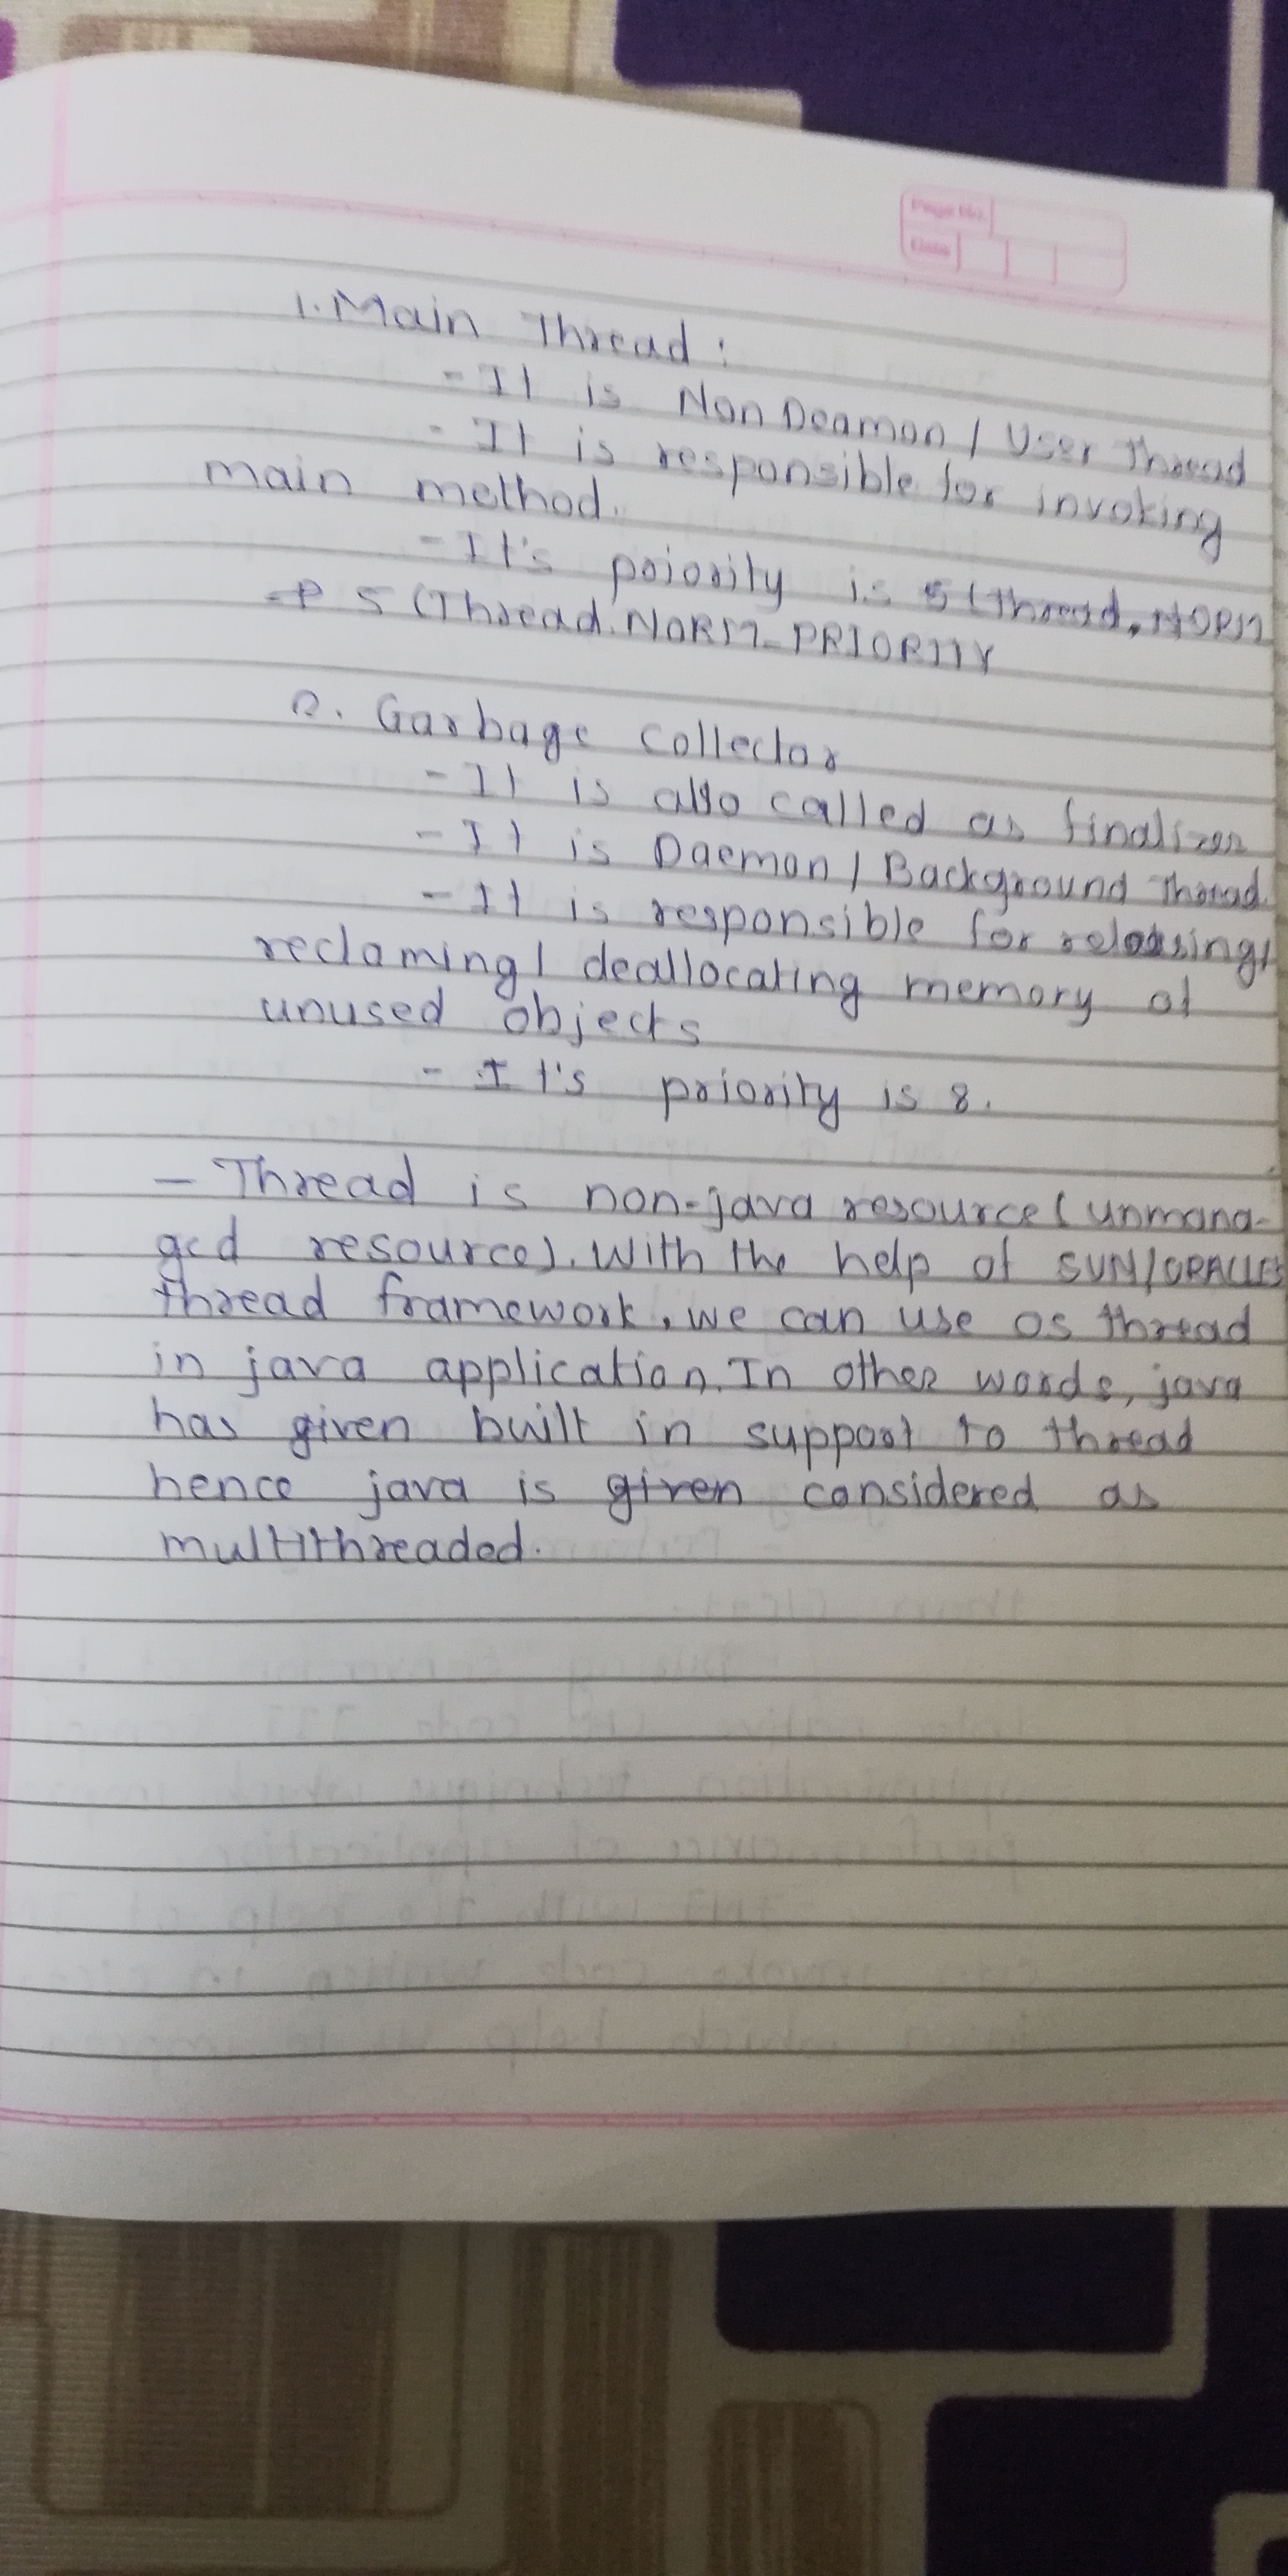 Page No.
Date
1. Main Thread :
- It is Non Deamon / User Thread
- It is responsible for invoking
main method.
- It's poiority is 5 (Thread.NORM
-P 5 (Thread.NORM_PRIORITY
2. Garbage Collector
- It is also called as finalizer
- It is Daemon / Background Thread.
- It is responsible for releasing/
reclaming / deallocating memory of
unused objects
- It's priority is 8.
- Thread is non-java resource (unmana-
ged resource). With the help of SUN/ORACLE's
thread framework, we can use os thread
in java application. In other words, java
has given built in support to thread
hence java is given considered as
multithreaded.